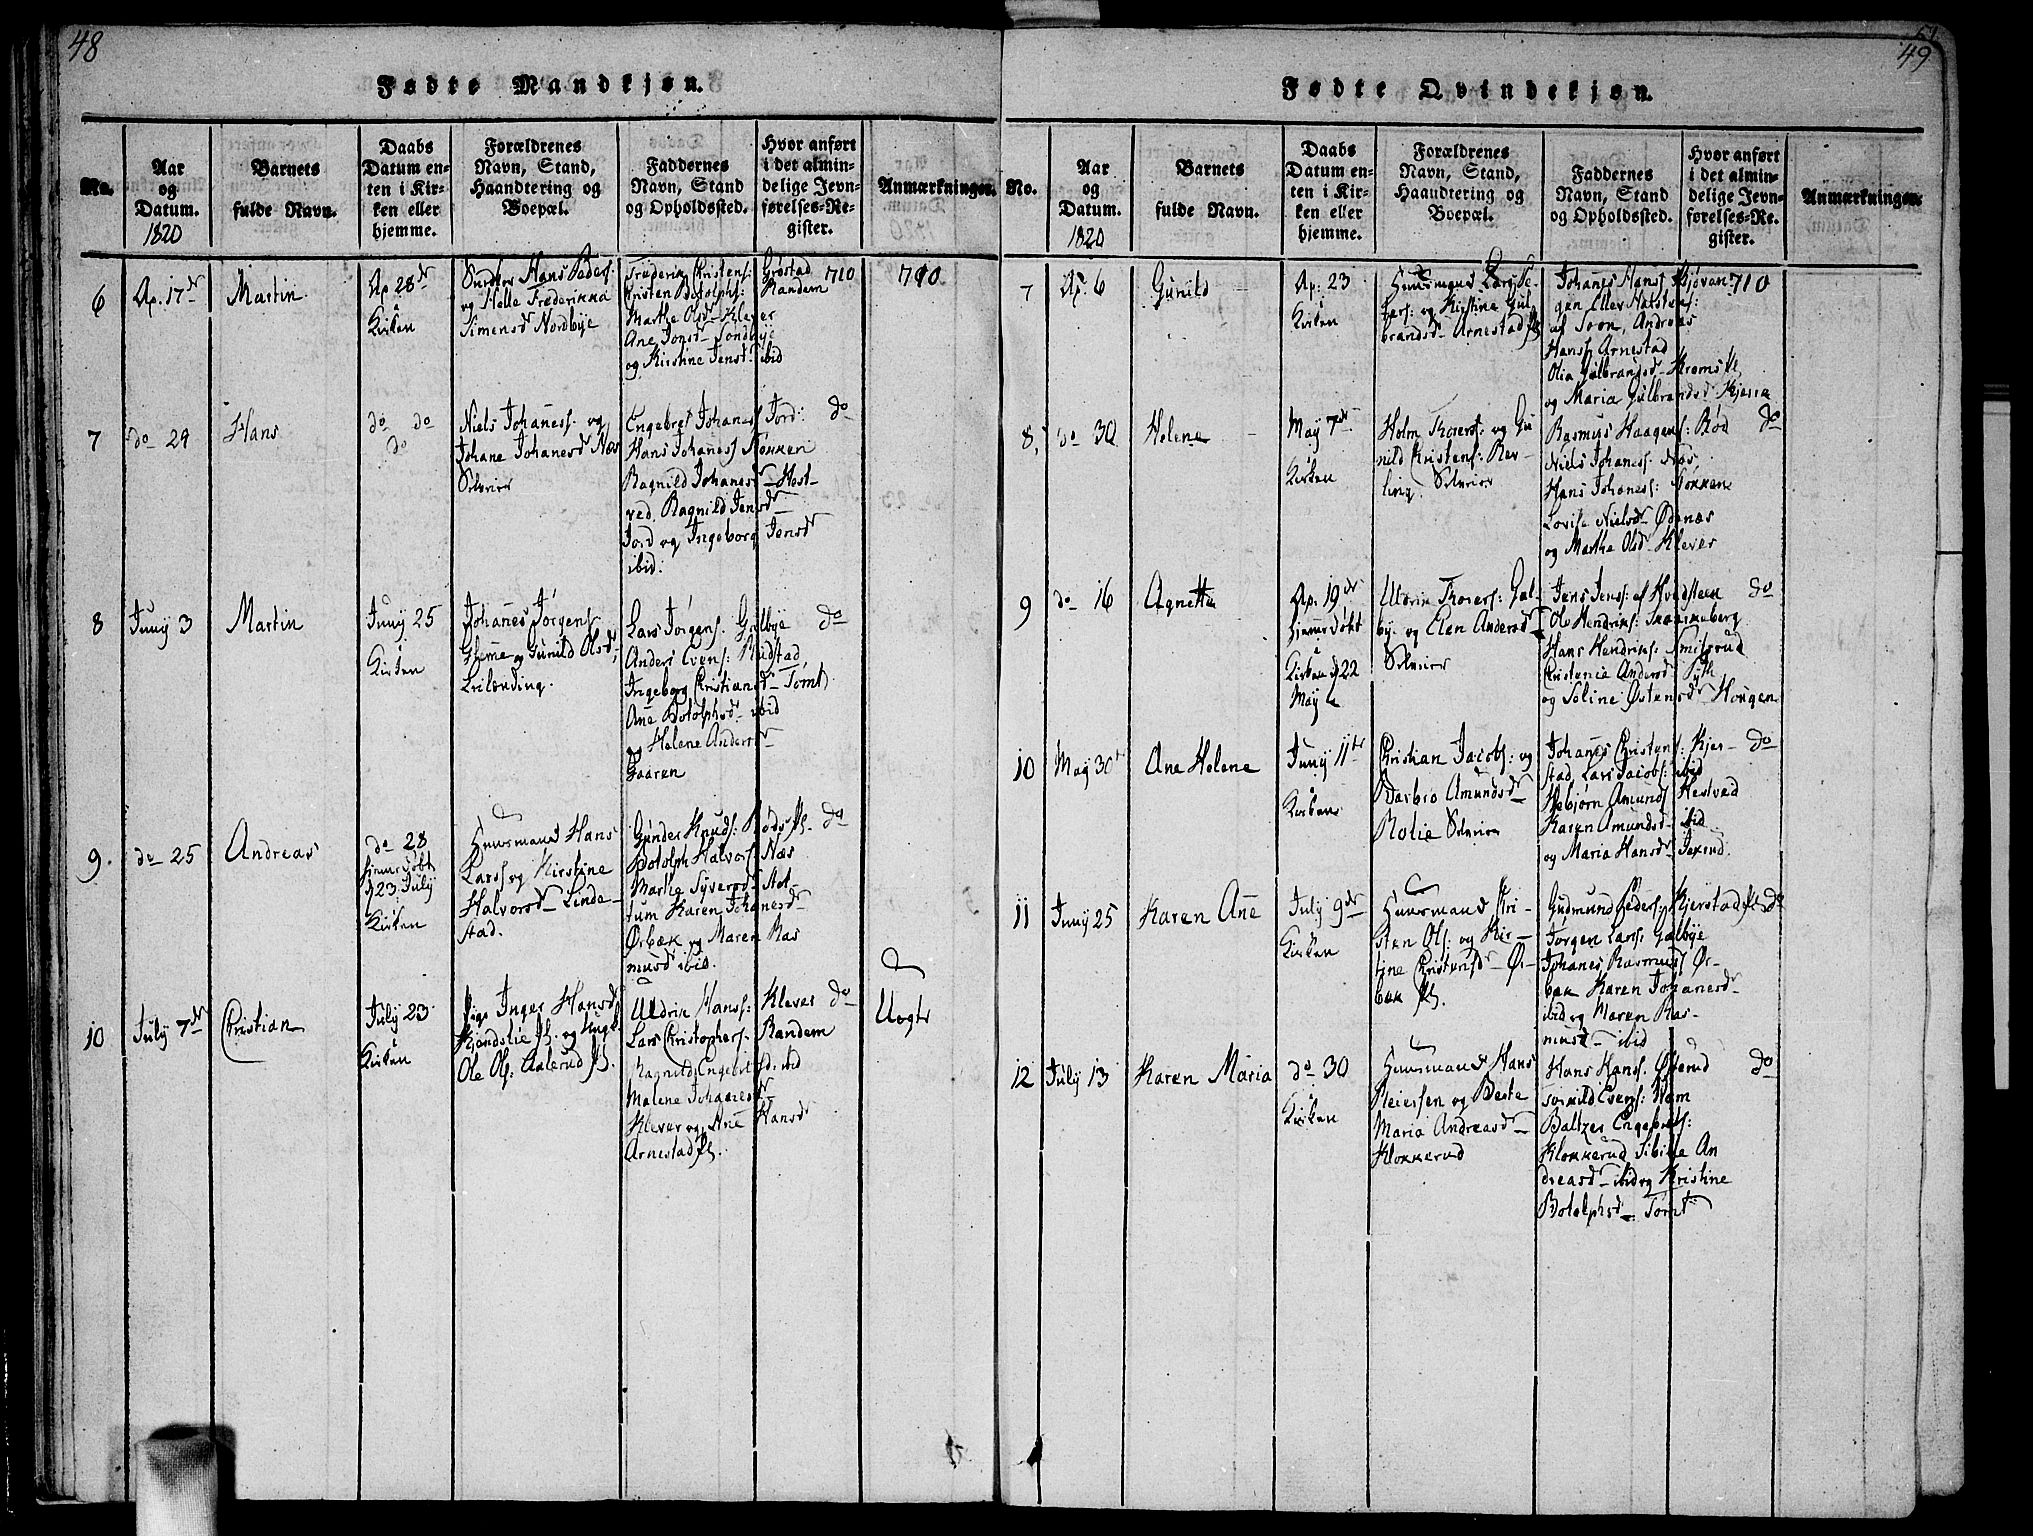 48
Fødte Mandkjøn.
No.
Aar
og
Datum.
1820
Barnets
fulde Navn.
Daabs
Datum en-
ten i Kir-
ken eller
hjemme.
Forældrenes
Navn, Stand,
Haandtering og
Boepæl.
Faddernes
Navn, Stand
og Opholdssted.
Hvor anført
i det almin-
delige Jevn-
førelses-Re-
gister.
Anmærkninger.
6
Ap. 17de
Martin
Ap 28de
Kirken
Hans Peders:
og Helle Frederikka
Simensd Nordbye
Frederik Christens: Grøstad
Christen Botolphs: Randem
Marthe Olsd Klever
Ane Jonsd Sondbye
og Kirstine Jensd ibid
710
710
7
do 29
Hans
do do
do
Niels Johanes: og
Johane Johanesd Næs
Selveier
Engebret Johanes Jord:
Hans Johanes Stokken
Ragnild Johanesd Hest-
ved, Ragnild Jensd
Jord og Ingeborg Jensd
ibid:
do
8
Juny 3
Martin
Juny 25
Kirken
Johanes Jørgens
og Gunild Olsd
Leilænding.
Lars Jørgens. Gulbye
Anders Evens: Rudstad
Ingeborg Christiansd Tomt
Ane Botolphsd ibid
og Helene Andersd
Gaaren
do
9.
do 25
Andreas
do 28
hjemedøbt
23 July
Kirken
Huusmand Hans
Lars og Kirstine
Halvorsd Linde-
stad.
Gunder Knuds: Røds
Botolph Halvors Næs
Marthe Syversd Aas-
tum Karen Johanesd
Ørbæk og Maren Ras
musd ibid.
do
10
July 7de
Christian
July 23
Kirken
Pige Inger Hansd
og Ungk.
Ole Ols: Aalerud
Uldrik Hans: Klever
Lars Christophers. Randem
Ragnild Engebrets d. ibid
Malene Johanesd
Klever og Ane Hansd
Arnestad
do
Uægte
49
Fødte Qvindekjøn.
No.
Aar
og
Datum.
1820
Barnets
fulde Navn.
Daabs
Datum en-
ten i Kir-
ken eller
hjemme.
Forældrenes
Navn, Stand,
Haandtering og
Boepæl.
Faddernes
Navn, Stand
og Opholdssted.
Hvor anført
i det almin-
delige Jevn-
førelses-Re-
gister.
Anmærkninger.
7
Ap. 6
Gunild
Ap: 23
Kirken
Huusmand Lars Pe-
ders: og Kirstine Gul-
brandsd Arnestad
Johanes Hans Kjøvan-
gen Ellev Halsten:
af Soon, Andreas
Hans Arnestad
Olia Gulbrandsd Kroms
og Maria Gulbrandsd Kjerra
710
8.
do 30
Helene
May 7de
Kirken
Holm Thorers: og Gu
nild Christens: Rev-
ling. Selveier
Rasmus Haagens: Rød
Niels Johanes: Næs
Hans Johanes: Stokken
Lovise Nielsd Ødenæs
og Marthe Olsd Klever
do
9
do 16
Agnethe
Ap: 19de
hjemedøbt
Kirken d 22
May
Uldrik Thorers: Gul-
bye og Elen Andersd
Selveier
Jens Jens: af Hvidsteen
Ole Hendriks:
Hans Hendriks: Smitsrud
Christenie Andersd
og Soline Østensd Hougen
do
10
May 30te
Ane Helene
Juny 11te
Kirken
Christian Jacobs: og
Barbro Amundsd
Rolie Selveier
Johanes Christens: Kjer-
stad Lars Jacobs: ibid
Asbjørn Amunds Hestved
Karen Amundsd ibid
og Maria Hansd
do
11
Juny 25
Karen Ane
July 9de
Kirken
Huusmand Kri-
sten Ols: og Kir-
tine Christensd Ør-
bæk
Gudmund Peders: Kjerstad
Jørgen Lars: Gulbye
Johanes Rasmus Ør-
bæk Karen Johanesd
ibid og Maren Ras-
musd ibid
do
12
July 13
Karen Maria
do 30
Kirken
Huusmand Hans
Reiersen og Berte
Maria Andreasd
Klokkerud
Hans Hans: Østerud
Evens: Ham
Baltzer Engebrets:
Klokkerud Sibille An
dreasd ibid og Kristine
Botolphsd Tomt
do